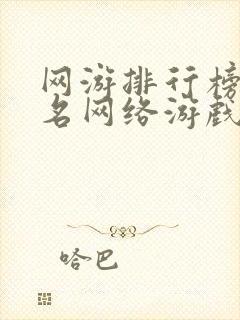 网游排行榜
名网络游戏
哈巴